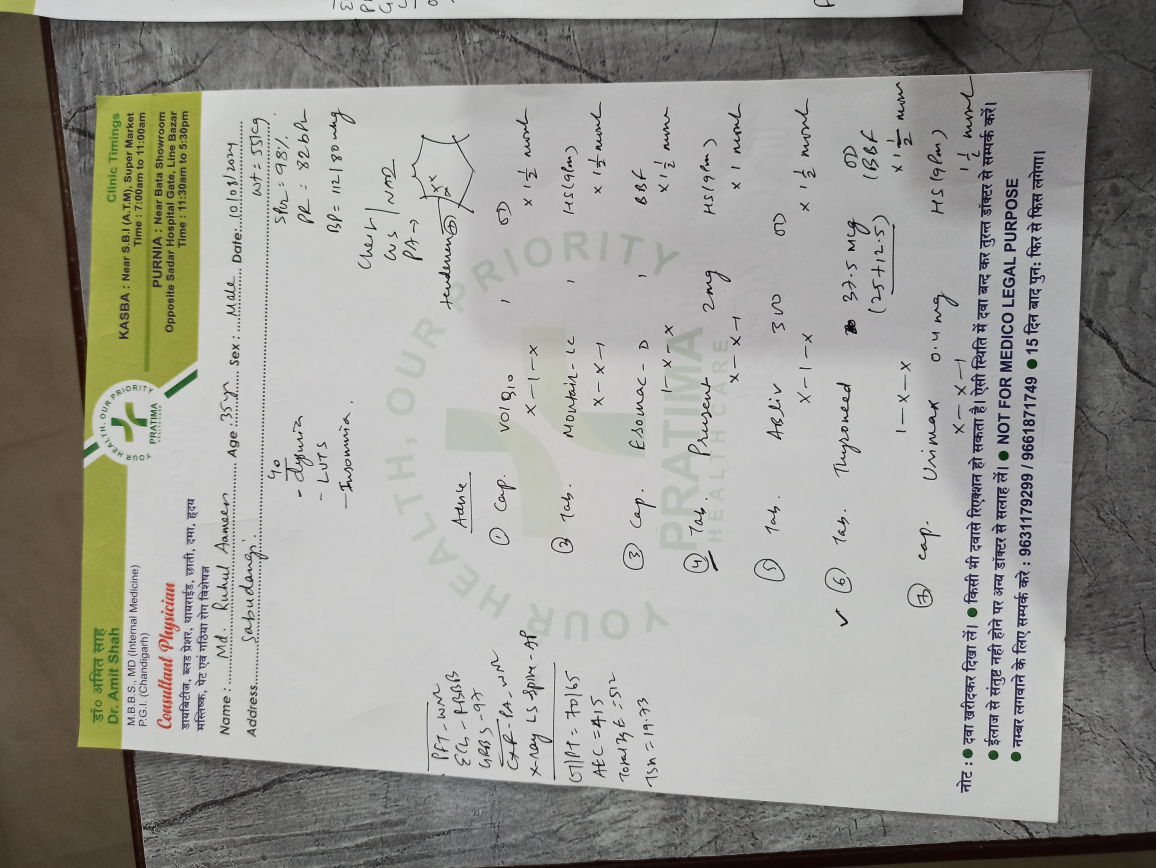 डॉ० अमित साह
Dr. Amit Shah
M.B.B.S., MD (Internal Medicine)
P.G.I. (Chandigarh)
Consultant Physician
डायबिटीज, ब्लड प्रेशर, थायराईड, छाती, दमा, हृदय
मस्तिष्क, पेट एवं गठिया रोग विशेषज्ञ
YOUR HEALTH, OUR PRIORITY
PRATIMA
Clinic Timings
KASBA : Near S.B.I (A.T.M), Super Market
Time : 7:00am to 11:00am
PURNIA : Near Bata Showroom
Opposite Sadar Hospital Gate, Line Bazar
Time : 11:30am to 5:30pm
Name : Md. Ruhul Aameen Age : 35yr Sex : Male Date: 10/08/2024
Address Sabudangi
wt = 55kg
SPO2 = 98%
PR = 82 bPM
BP = 112/80 mmHg
Chest / NAD
CVS
PA →
tenderness
- dysuria
- LUTS
- Insomnia.
PFT - WNL
ECG - RBBB
GRBS - 97
CXR - PA - WNL
X-ray LS Spine - AP
OT/PT = 70/65
AEC = 415
Total IgE = 512
TSH = 19.73
Advice
① Cap. Volo 10 , OD
x-1-x x 1 1/2 month
② Tab. Montair-LC , HS (9Pm)
x-x-1 x 1 1/2 month
③ Cap. Esomac-D , BBF
1-x-x x 1 1/2 month
④ Tab. Prusent 2mg HS (9Pm)
x-x-1 x 1 month
⑤ Tab. ABliv 300 OD
x-1-x x 1 1/2 month
✓ ⑥ Tab. Thyroneed 37.5 Mcg OD
(25+12.5) (BBF
1-x-x x 1 1/2 mon
⑦ Cap. Urimax 0.4 mg HS (9Pm)
x-x-1 1 1/2 month
YOUR HEALTH, OUR PRIORITY
PRATIMA
HEALTHCARE
नोट : ● दवा खरीदकर दिखा लें। ● किसी भी दवासे रिएक्शन हो सकता है। ऐसी स्थिति में दवा बन्द कर तुरन्त डॉक्टर से सम्पर्क करें।
● ईलाज से संतुष्ट नही होने पर अन्य डॉक्टर से सलाह लें। ● NOT FOR MEDICO LEGAL PURPOSE
● नम्बर लगवाने के लिए सम्पर्क करे : 9631179299 / 9661871749 ● 15 दिन बाद पुनः फिर से फिस लगेगा।